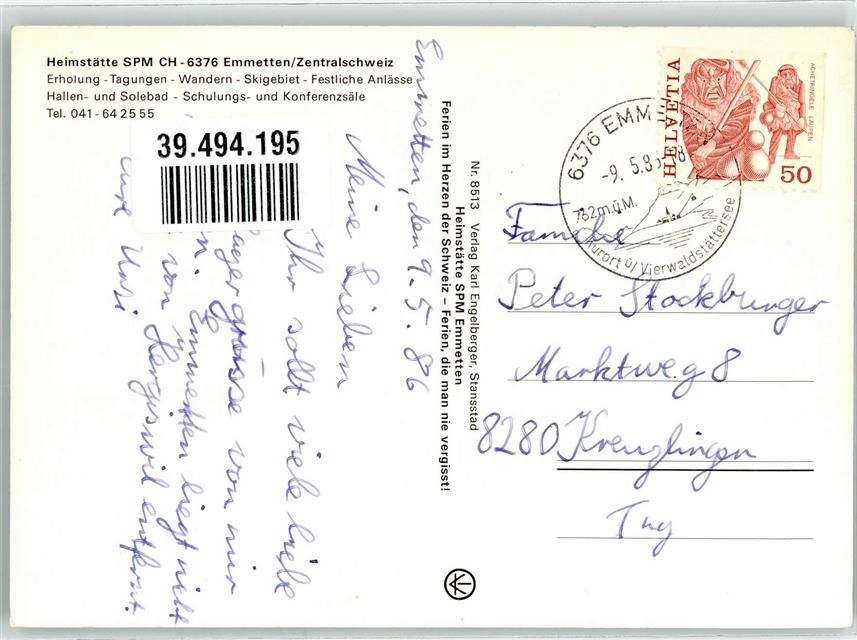 Heimstätte SPM CH-6376 Emmetten/Zentralschweiz
Erholung - Tagungen - Wandern - Skigebiet - Festliche Anlässe
Hallen- und Solebad - Schulungs- und Konferenzsäle
Tel. 041 - 64 25 55
39.494.195
Emmetten, den 9. 5. 86
Meine Lieben
Ihr sollt viele liebe
agergrüsse von mir
n. Emmetten liegt nicht
von Hergiswil entfernt.
Eure Ursi
Ferien im Herzen der Schweiz – Ferien, die man nie vergisst!
Heimstätte SPM Emmetten
Nr. 8513 Verlag Karl Engelberger, Stansstad
6376 EMME
-9. 5.8
762 m.ü.M.
Kurort ü/Vierwaldstättersee
HELVETIA
ACHETRINGELE LAUPEN
50
Familie
Peter Stockburger
Marktweg 8
8280 Kreuzlingen
Thg